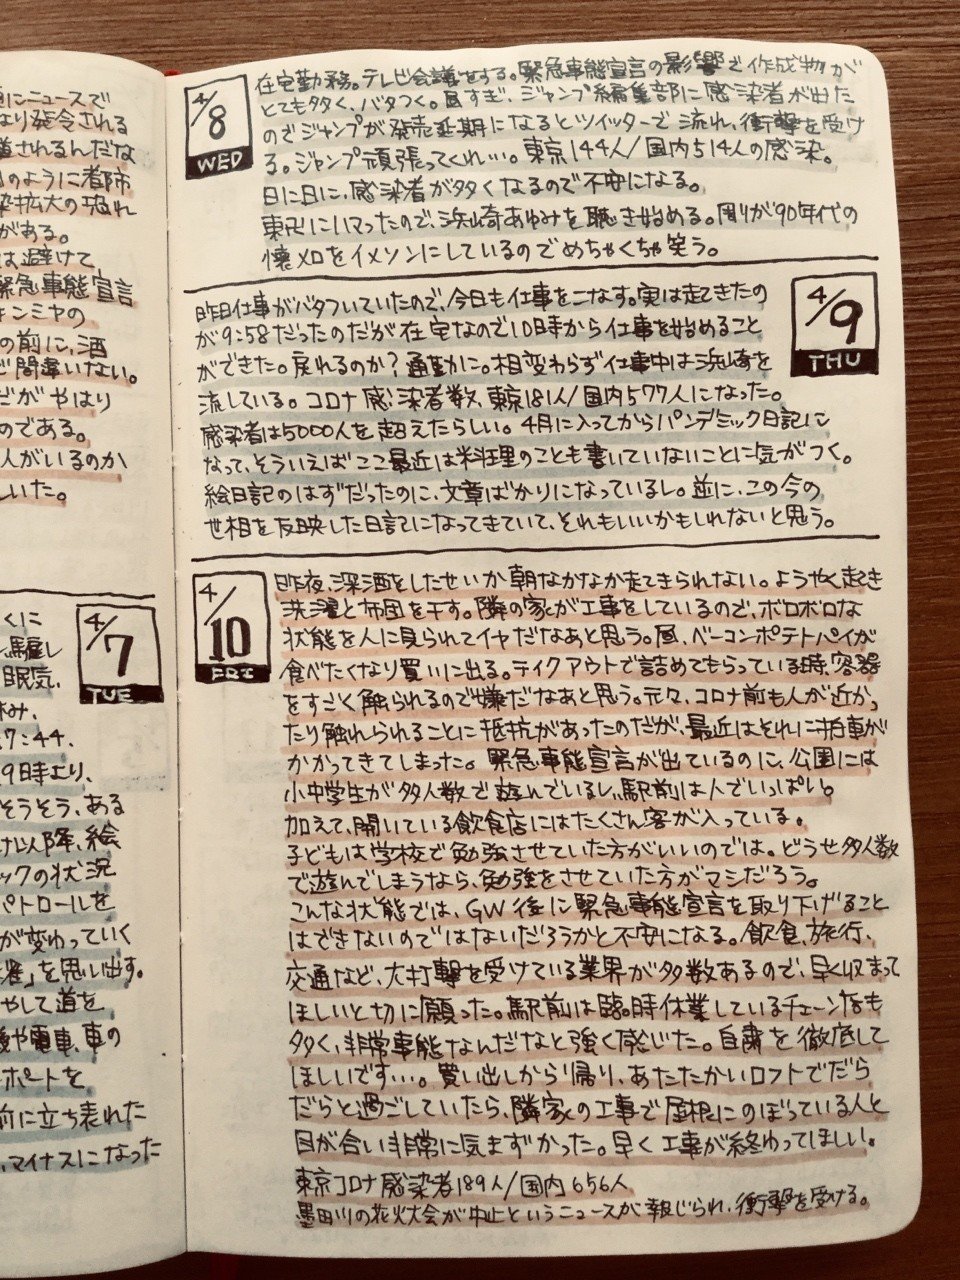 にニュースで
より発令される
道されるんだな
のように都市
染拡大の恐れ
がある。
は避けて
緊急事態宣言
キンミヤの
の前に、酒
間違いない。
だがやはり
のである。
人がいるのか
いた。
4/7
TUE
くに
眠気、
休み、
7:44、
9日時より、
そうそう、ある
け以降、絵
ックの状況
パトロールを
が変わっていく
」を思い出す。
やして道を
や電車、車の
ポートを
前に立ち表れた
、マイナスになった
4/8
WED
在宅勤務。テレビ会議をする。緊急事態宣言の影響で作成物が
とても多く、バタつく。昼すぎ、ジャンプ編集部に感染者が出た
のでジャンプが発売延期になるとツイッターで流れ、衝撃を受け
る。ジャンプ頑張ってくれぃ。東京144人/国内514人の感染。
日に日に、感染者が多くなるので不安になる。
東卍にハマったので、浜崎あゆみを聴き始める。周りが90年代の
懐メロをイメソンにしているのでめちゃくちゃ笑う。
4/9
THU
昨日仕事がバタついていたので、今日も仕事をこなす。実は起きたの
が9:58だったのだが在宅なので10時から仕事を始めること
ができた。戻れるのか?通勤に。相変わらず仕事中は浜崎を
流している。コロナ感染者数、東京181人/国内577人になった。
感染者は5000人を超えたらしい。4月に入ってからパンデミック日記に
なって、そういえばここ最近は料理のことも書いていないことに気がつく。
絵日記のはずだったのに、文章ばかりになっているし。並に、この今の
世相を反映した日記になってきていて、それもいいかもしれないと思う。
4/10
FRI
昨夜、深酒をしたせいか朝なかなか起きられない。ようやく起き
洗濯と布団を干す。隣の家が工事をしているので、ボロボロな
状態を人に見られてイヤだなあと思う。昼、ベーコンポテトパイが
食べたくなり買いに出る。テイクアウトで詰めてもらっている時、容器
をすごく触られるので嫌だなあと思う。元々、コロナ前も人が近かっ
たり触れられることに抵抗があったのだが、最近はそれに拍車が
かかってきてしまった。緊急事態宣言が出ているのに、公園には
小中学生が多人数で遊んでいるし、駅前は人でいっぱい。
加えて、開いている飲食店にはたくさん客が入っている。
子どもは学校で勉強させていた方がいいのでは。どうせ多人数
で遊んでしまうなら、勉強をさせていた方がマシだろう。
こんな状態では、GW後に緊急事態宣言を取り下げること
はできないのではないだろうかと不安になる。飲食、旅行、
交通など、大打撃を受けている業界が多数あるので、早く収まって
ほしいと切に願った。駅前は臨時休業しているチェーン店も
多く、非常事態なんだなと強く感じた。自粛を徹底して
ほしいです…。買い出しから帰り、あたたかいロフトでだら
だらと過ごしていたら、隣家の工事で屋根にのぼっている人と
目が合い非常に気まずかった。早く工事が終わってほしい。
東京コロナ感染者189人/国内656人
墨田川の花火大会が中止というニュースが報じられ、衝撃を受ける。